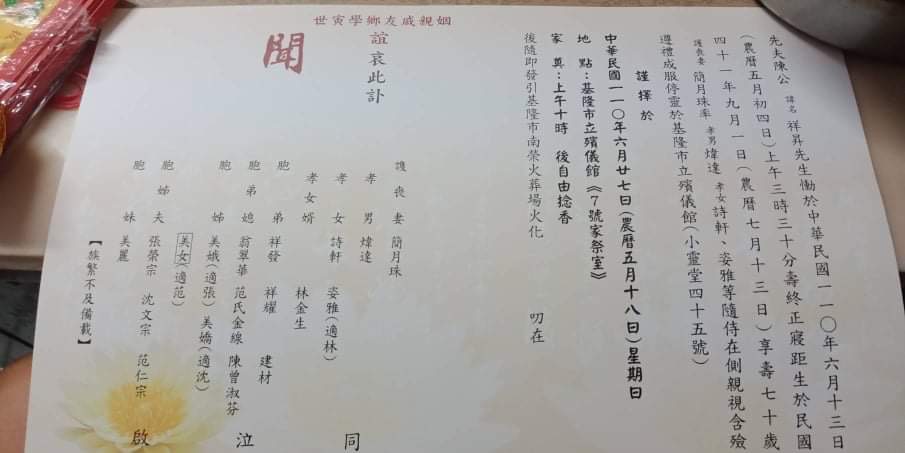 先夫陳公 諱名 祥昇先生慟於中華民國一一〇年六月十三日
(農曆五月初四日)上午三時三十分壽終正寢距生於民國
四十一年九月一日(農曆七月十三日)享壽七十歲
護喪妻 簡月珠率 孝男 煒達 孝女 詩軒、姿雅等隨侍在側親視含殮
遵禮成服停靈於基隆市立殯儀館(小靈堂四十五號)
謹擇於
中華民國一一〇年六月廿七日(農曆五月十八日)星期日
地 點:基隆市立殯儀館《7號家祭室》
家 奠:上午十時 後自由捻香
後隨即發引基隆市南榮火葬場火化
叨在
姻親戚友鄉學寅世
誼哀此訃
聞
護喪妻 簡月珠
孝男 煒達
孝女 詩軒 姿雅(適林)
孝女婿 林金生
胞弟 祥發 祥耀 建材
胞弟媳 翁翠華 范氏金線 陳曾淑芬
胞姊 美娥(適張) 美嬌(適沈)
美女(適范)
胞姊夫 張榮宗 沈文宗 范仁宗
胞妹 美麗
【族繁不及備載】
同
泣
啟